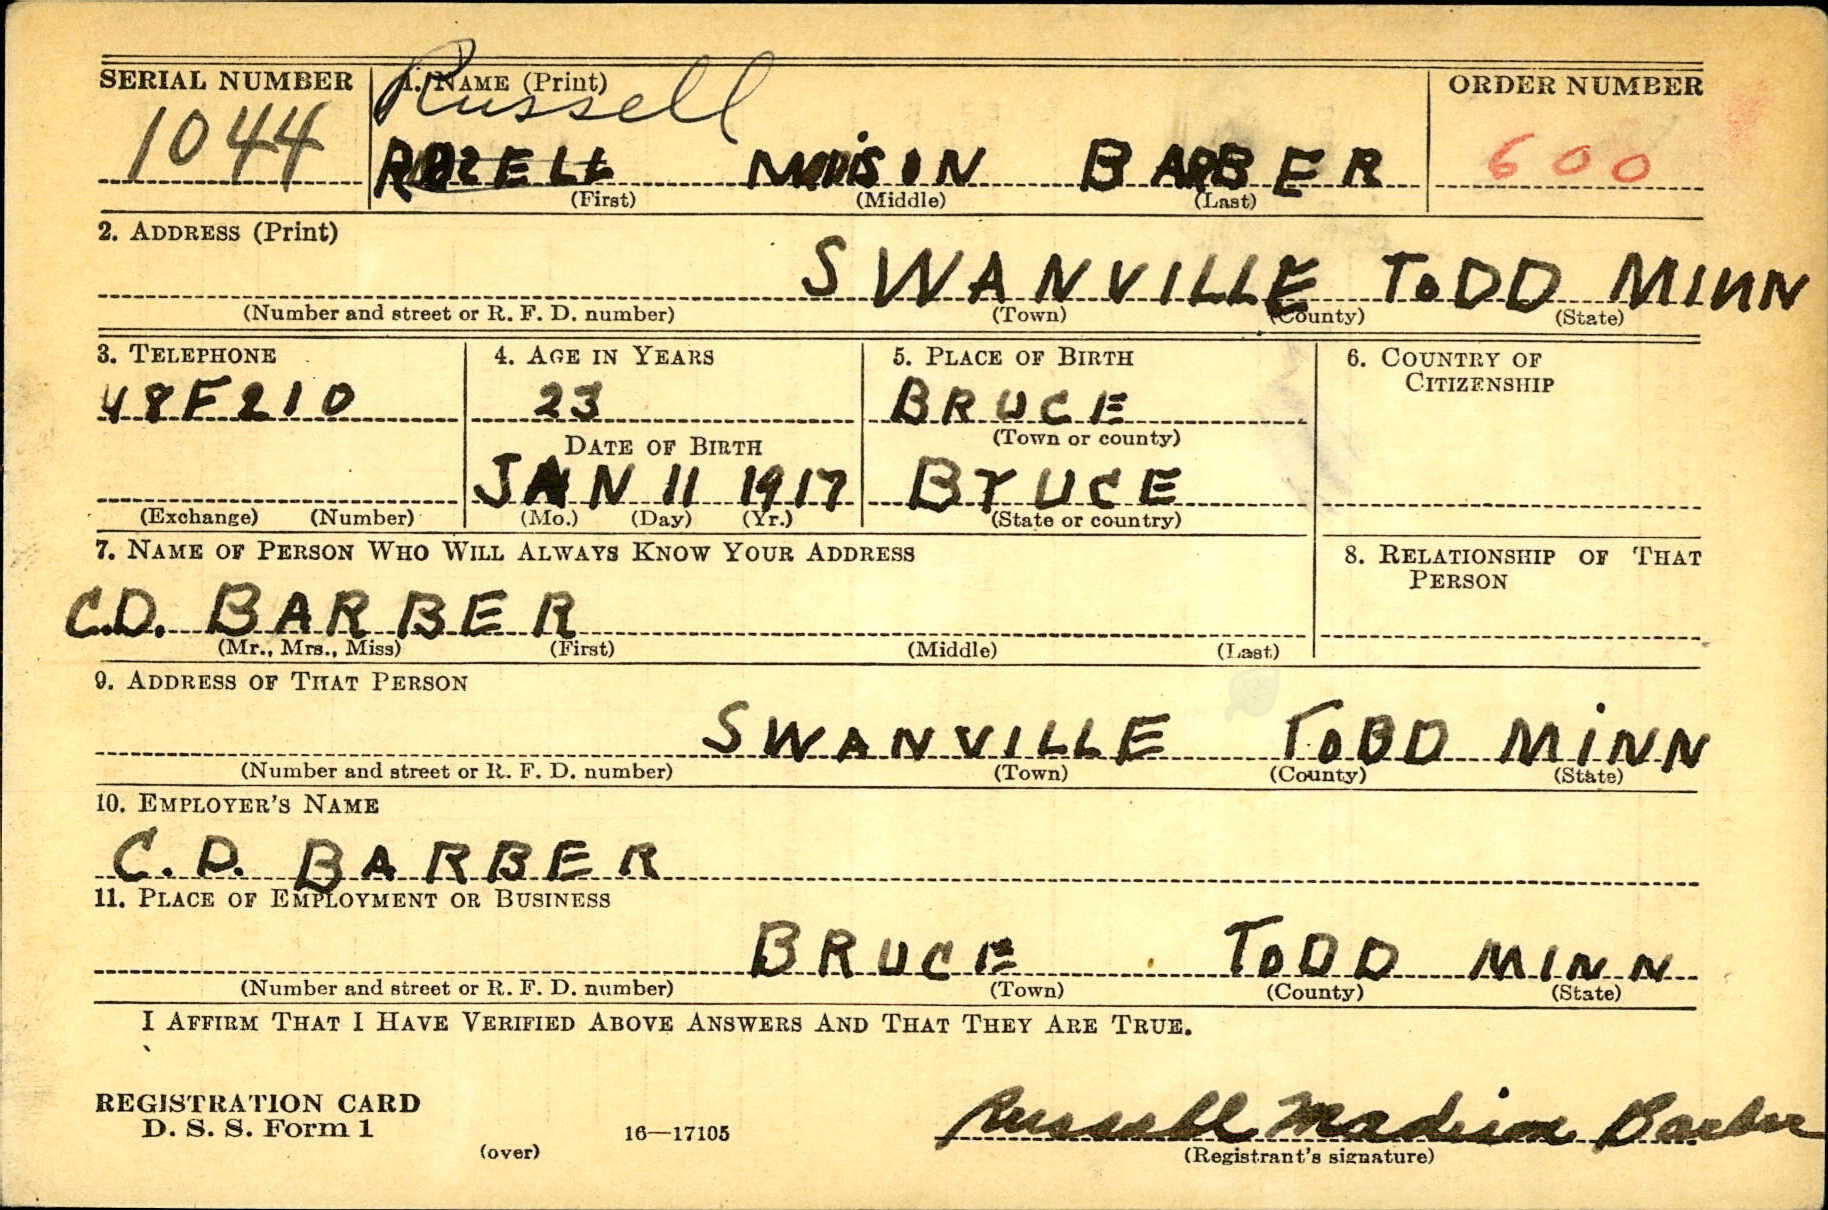 SERIAL NUMBER 1. NAME (Print) Russell ORDER NUMBER
1044 ROZELL MADISON BARBER 600
(First) (Middle) (Last)
2. ADDRESS (Print)
SWANVILLE TODD MINN
(Number and street or R. F. D. number) (Town) (County) (State)
3. TELEPHONE 4. AGE IN YEARS 5. PLACE OF BIRTH 6. COUNTRY OF CITIZENSHIP
48F210 23 BRUCE
(Town or county)
DATE OF BIRTH
JAN 11 1917 BRUCE
(Exchange) (Number) (Mo.) (Day) (Yr.) (State or country)
7. NAME OF PERSON WHO WILL ALWAYS KNOW YOUR ADDRESS 8. RELATIONSHIP OF THAT PERSON
C.D. BARBER
(Mr., Mrs., Miss) (First) (Middle) (Last)
9. ADDRESS OF THAT PERSON
SWANVILLE TODD MINN
(Number and street or R. F. D. number) (Town) (County) (State)
10. EMPLOYER'S NAME
C. D. BARBER
11. PLACE OF EMPLOYMENT OR BUSINESS
BRUCE TODD MINN
(Number and street or R. F. D. number) (Town) (County) (State)
I AFFIRM THAT I HAVE VERIFIED ABOVE ANSWERS AND THAT THEY ARE TRUE.
REGISTRATION CARD
D. S. S. Form 1 16—17105 Russell Madison Barber
(over) (Registrant's signature)